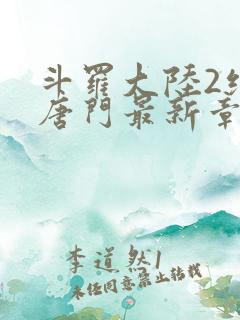 斗羅大陸2
唐門最新章
李道然1
未经同意禁止转载